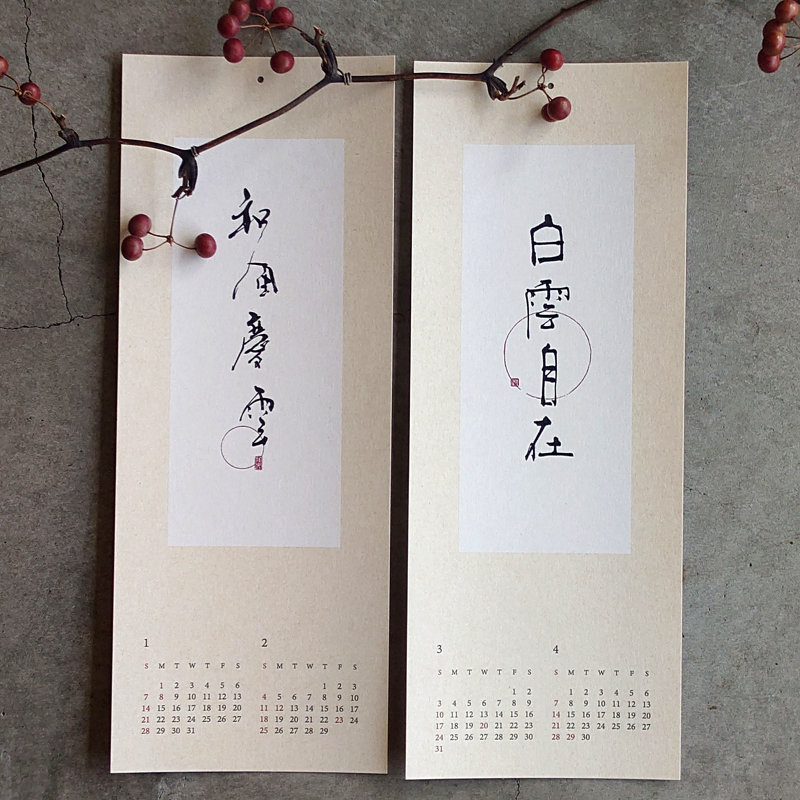 和風慶雲
1
S M T W T F S
1 2 3 4 5 6
7 8 9 10 11 12 13
14 15 16 17 18 19 20
21 22 23 24 25 26 27
28 29 30 31
2
S M T W T F S
1 2 3
4 5 6 7 8 9 10
11 12 13 14 15 16 17
18 19 20 21 22 23 24
25 26 27 28 29
白雲自在
3
S M T W T F S
1 2
3 4 5 6 7 8 9
10 11 12 13 14 15 16
17 18 19 20 21 22 23
24 25 26 27 28 29 30
31
4
S M T W T F S
1 2 3 4 5 6
7 8 9 10 11 12 13
14 15 16 17 18 19 20
21 22 23 24 25 26 27
28 29 30